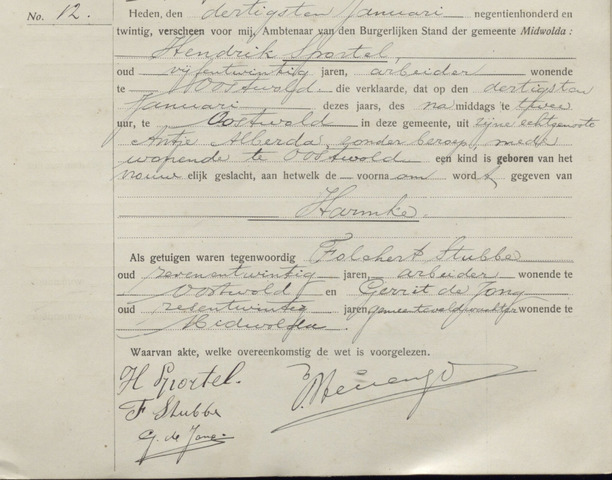 No. 12. Heden, den dertigsten Januari negentienhonderd en
twintig, verscheen voor mij, Ambtenaar van den Burgerlijken Stand der gemeente Midwolda:
Hendrik Sportel,
oud vijfentwintig jaren, arbeider wonende
te Oostwold die verklaarde, dat op den dertigsten
Januari dezes jaars, des namiddags te twee
uur, te Oostwold in deze gemeente, uit zijne echtgenoote
Antje Alberda, zonder beroep, mede
wonende te Oostwold een kind is geboren van het
vrouwelijk geslacht, aan hetwelk de voornaam wordt gegeven van
Harmke.
Als getuigen waren tegenwoordig Folchert Stubbe
oud zevenentwintig jaren, arbeider wonende te
Oostwold en Gerrit de Jong
oud zesentwintig jaren, gemeenteveldwachter wonende te
Midwolda.
Waarvan akte, welke overeenkomstig de wet is voorgelezen.
H Sportel.
F Stubbe
G. de Jong